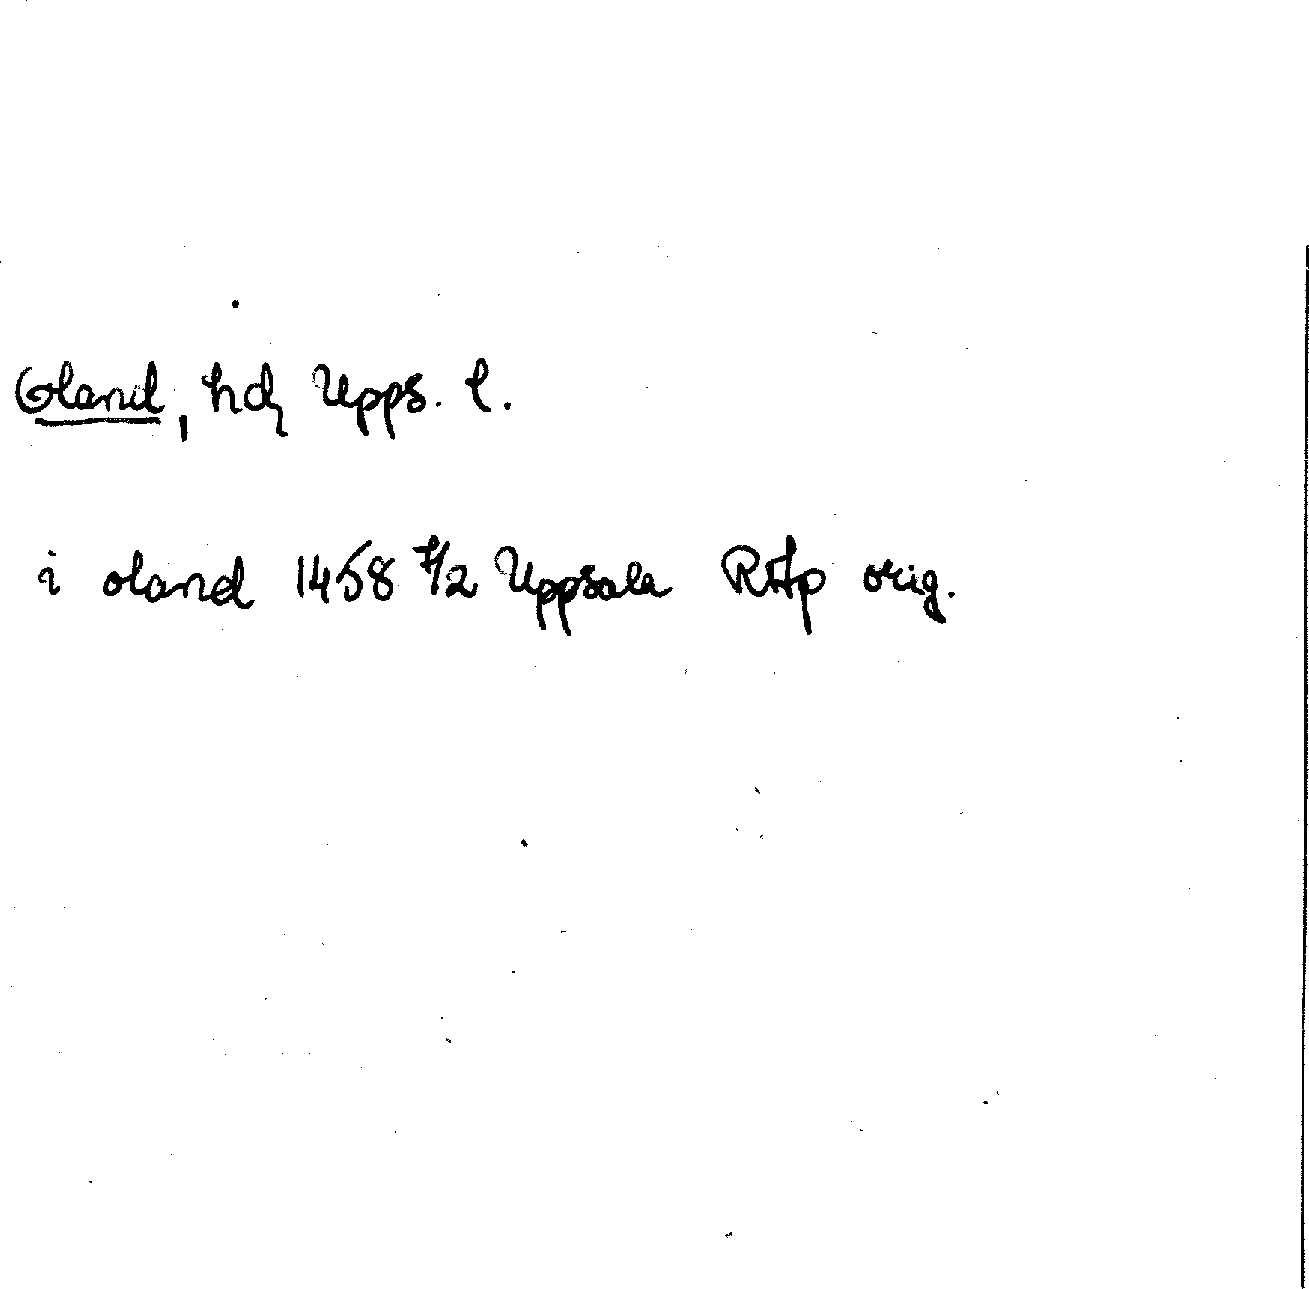 Oland, hd, Upps. l.
i oland 1458 7/2 Uppsala RAp orig.